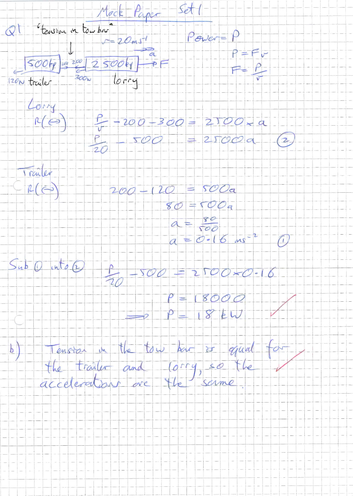 Mock Paper Set 1
Q1 "tension in tow bar"
→ 20ms⁻¹
Power = P
P = Fv
F = P/v
a
500kg 200 2500kg → F
120N 300N
trailer lorry
Lorry
R(↔) P/v - 200 - 300 = 2500 × a
P/20 - 500 = 2500a ②
Trailer
R(↔) 200 - 120 = 500a
80 = 500a
a = 80/500
a = 0.16 ms⁻² ①
Sub ① into ② P/20 - 500 = 2500 × 0.16
P = 18000
⇒ P = 18 kW
b) Tension in the tow bar is equal for
the trailer and lorry, so the
accelerations are the same